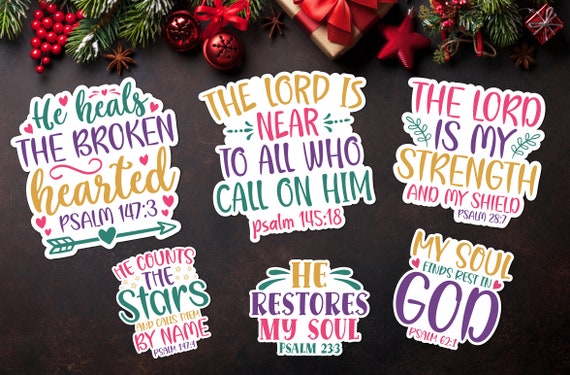 He heals
THE BROKEN
hearted
PSALM 147:3
THE LORD IS
NEAR
TO ALL WHO
CALL ON HIM
psalm 145:18
THE LORD
IS MY
STRENGTH
AND MY SHIELD
PSALM 28:7
HE COUNTS
THE
Stars
AND CALLS THEM
BY NAME
PSALM 147:4
HE
RESTORES
MY SOUL
PSALM 23:3
MY SOUL
FINDS REST IN
GOD
PSALM 62:1